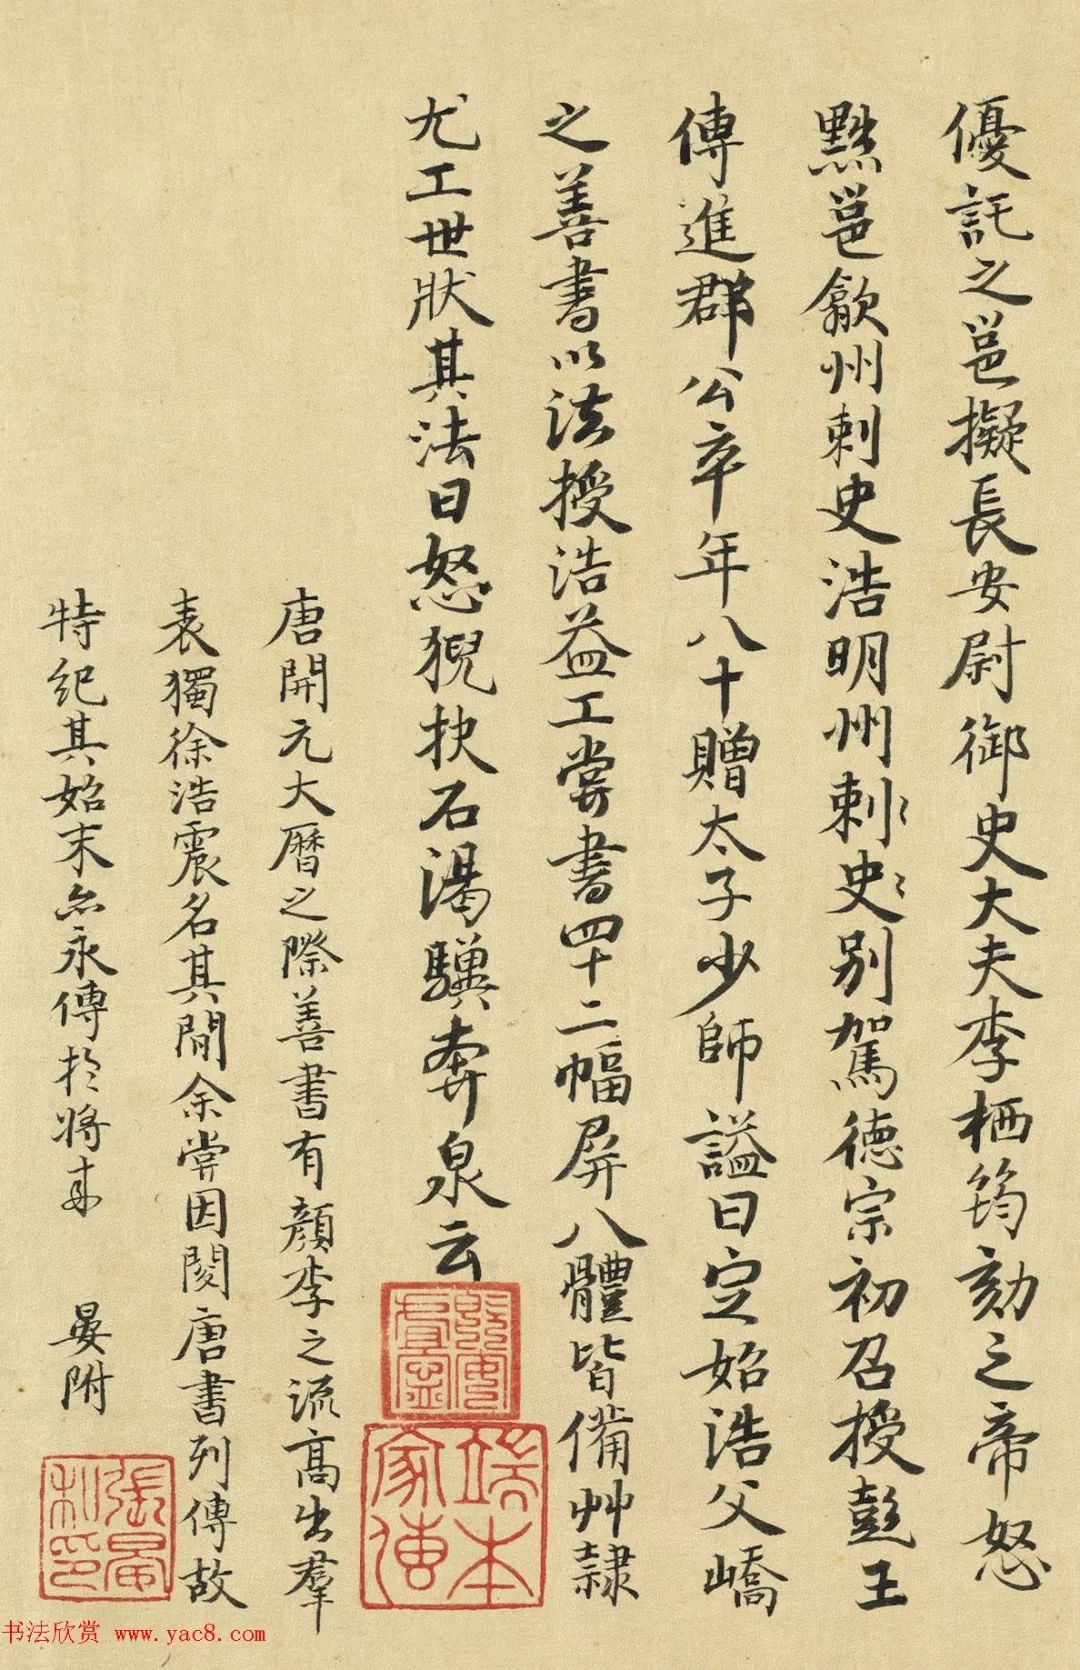 優託之邕擬長安尉御史大夫李栖筠劾之帝怒
黜邕歙州刺史浩明州刺史別駕德宗初召授彭王
傅進郡公卒年八十贈太子少師謚曰定始浩父嶠
之善書以法授浩益工嘗書四十二幅屏八體皆備艸隸
尤工世狀其法曰怒猊抉石渴驥奔泉云
唐開元大曆之際善書有顏李之流高出羣
表獨徐浩震名其間余嘗因閱唐書列傳故
特紀其始末亦永傳於將來
晏附
端本
家傳
張晏
私印
书法欣赏 www.yac8.com